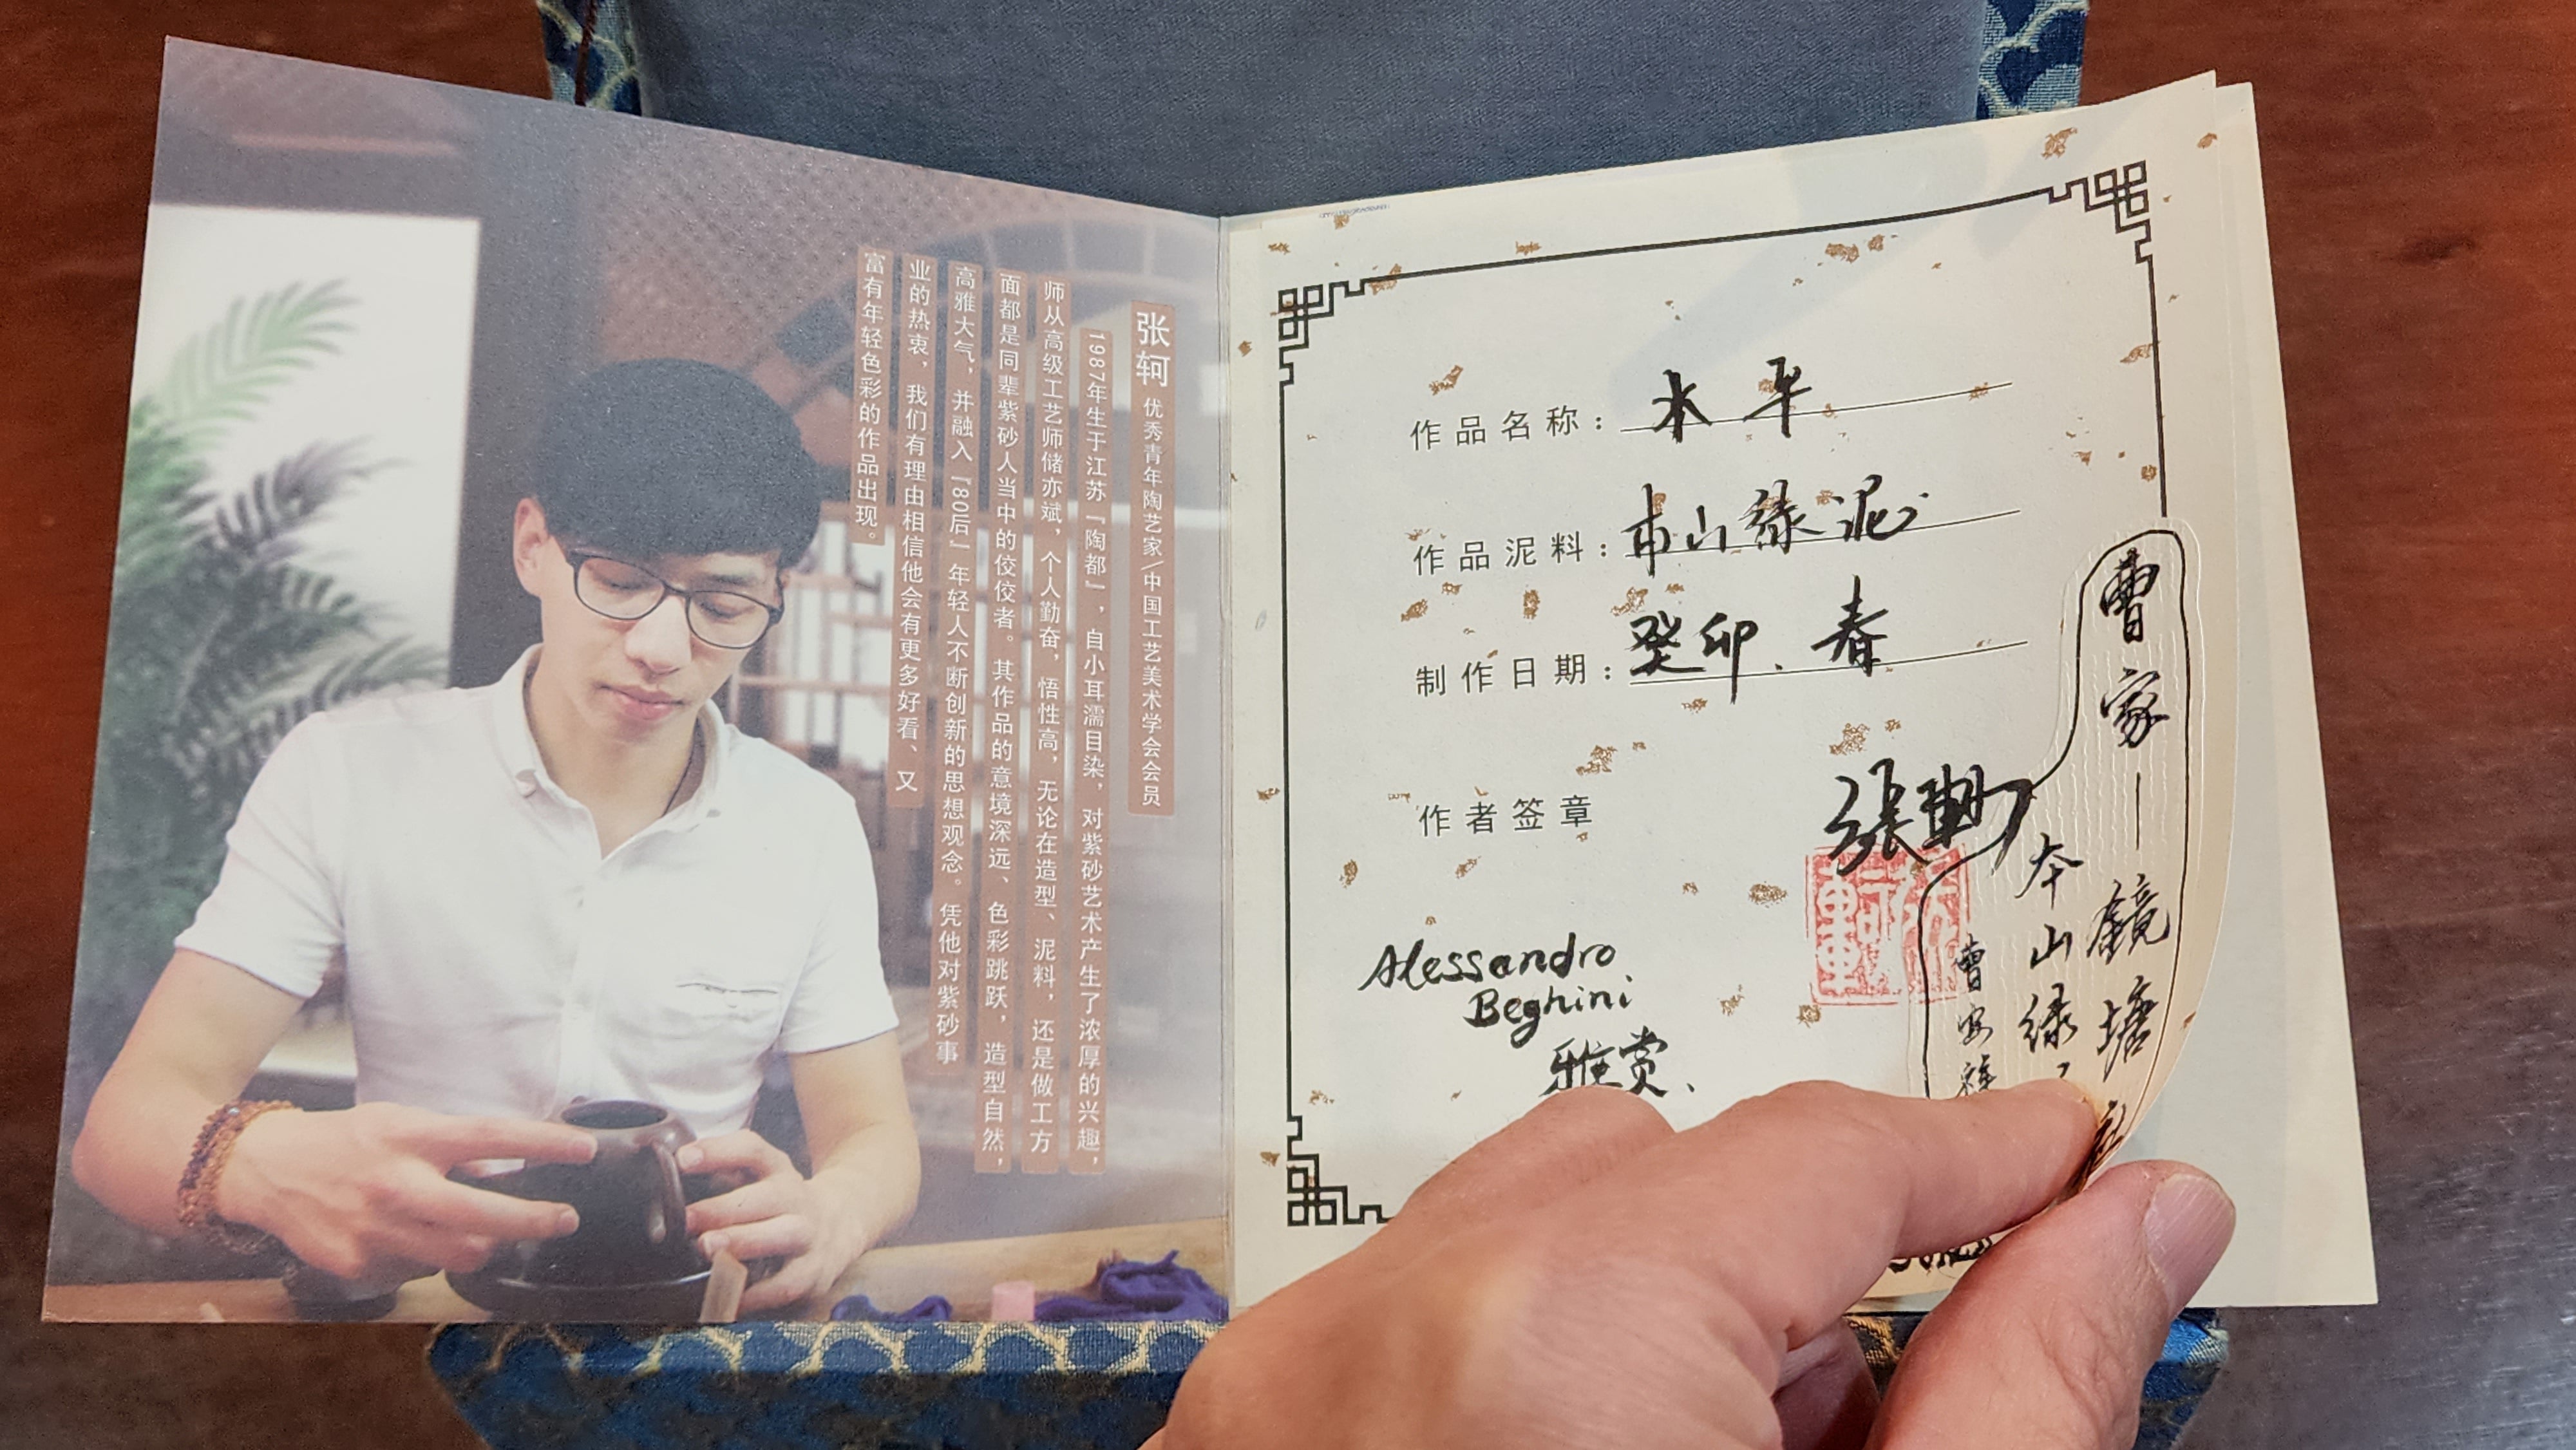 张轲 优秀青年陶艺家/中国工艺美术学会会员
1987年生于江苏『陶都』，自小耳濡目染，对紫砂艺术产生了浓厚的兴趣，
师从高级工艺师储亦斌，个人勤奋，悟性高，无论在造型、泥料，还是做工方
面都是同辈紫砂人当中的佼佼者。其作品的意境深远、色彩跳跃，造型自然，
高雅大气，并融入『80后』年轻人不断创新的思想观念。凭他对紫砂事
业的热衷，我们有理由相信他会有更多好看、又
富有年轻色彩的作品出现。
作品名称：水平
作品泥料：本山绿泥
制作日期：癸卯、春
作者签章
張軻
Alessandro
Beghini
雅赏、
曹家—鏡塘
本山绿
曹安祥